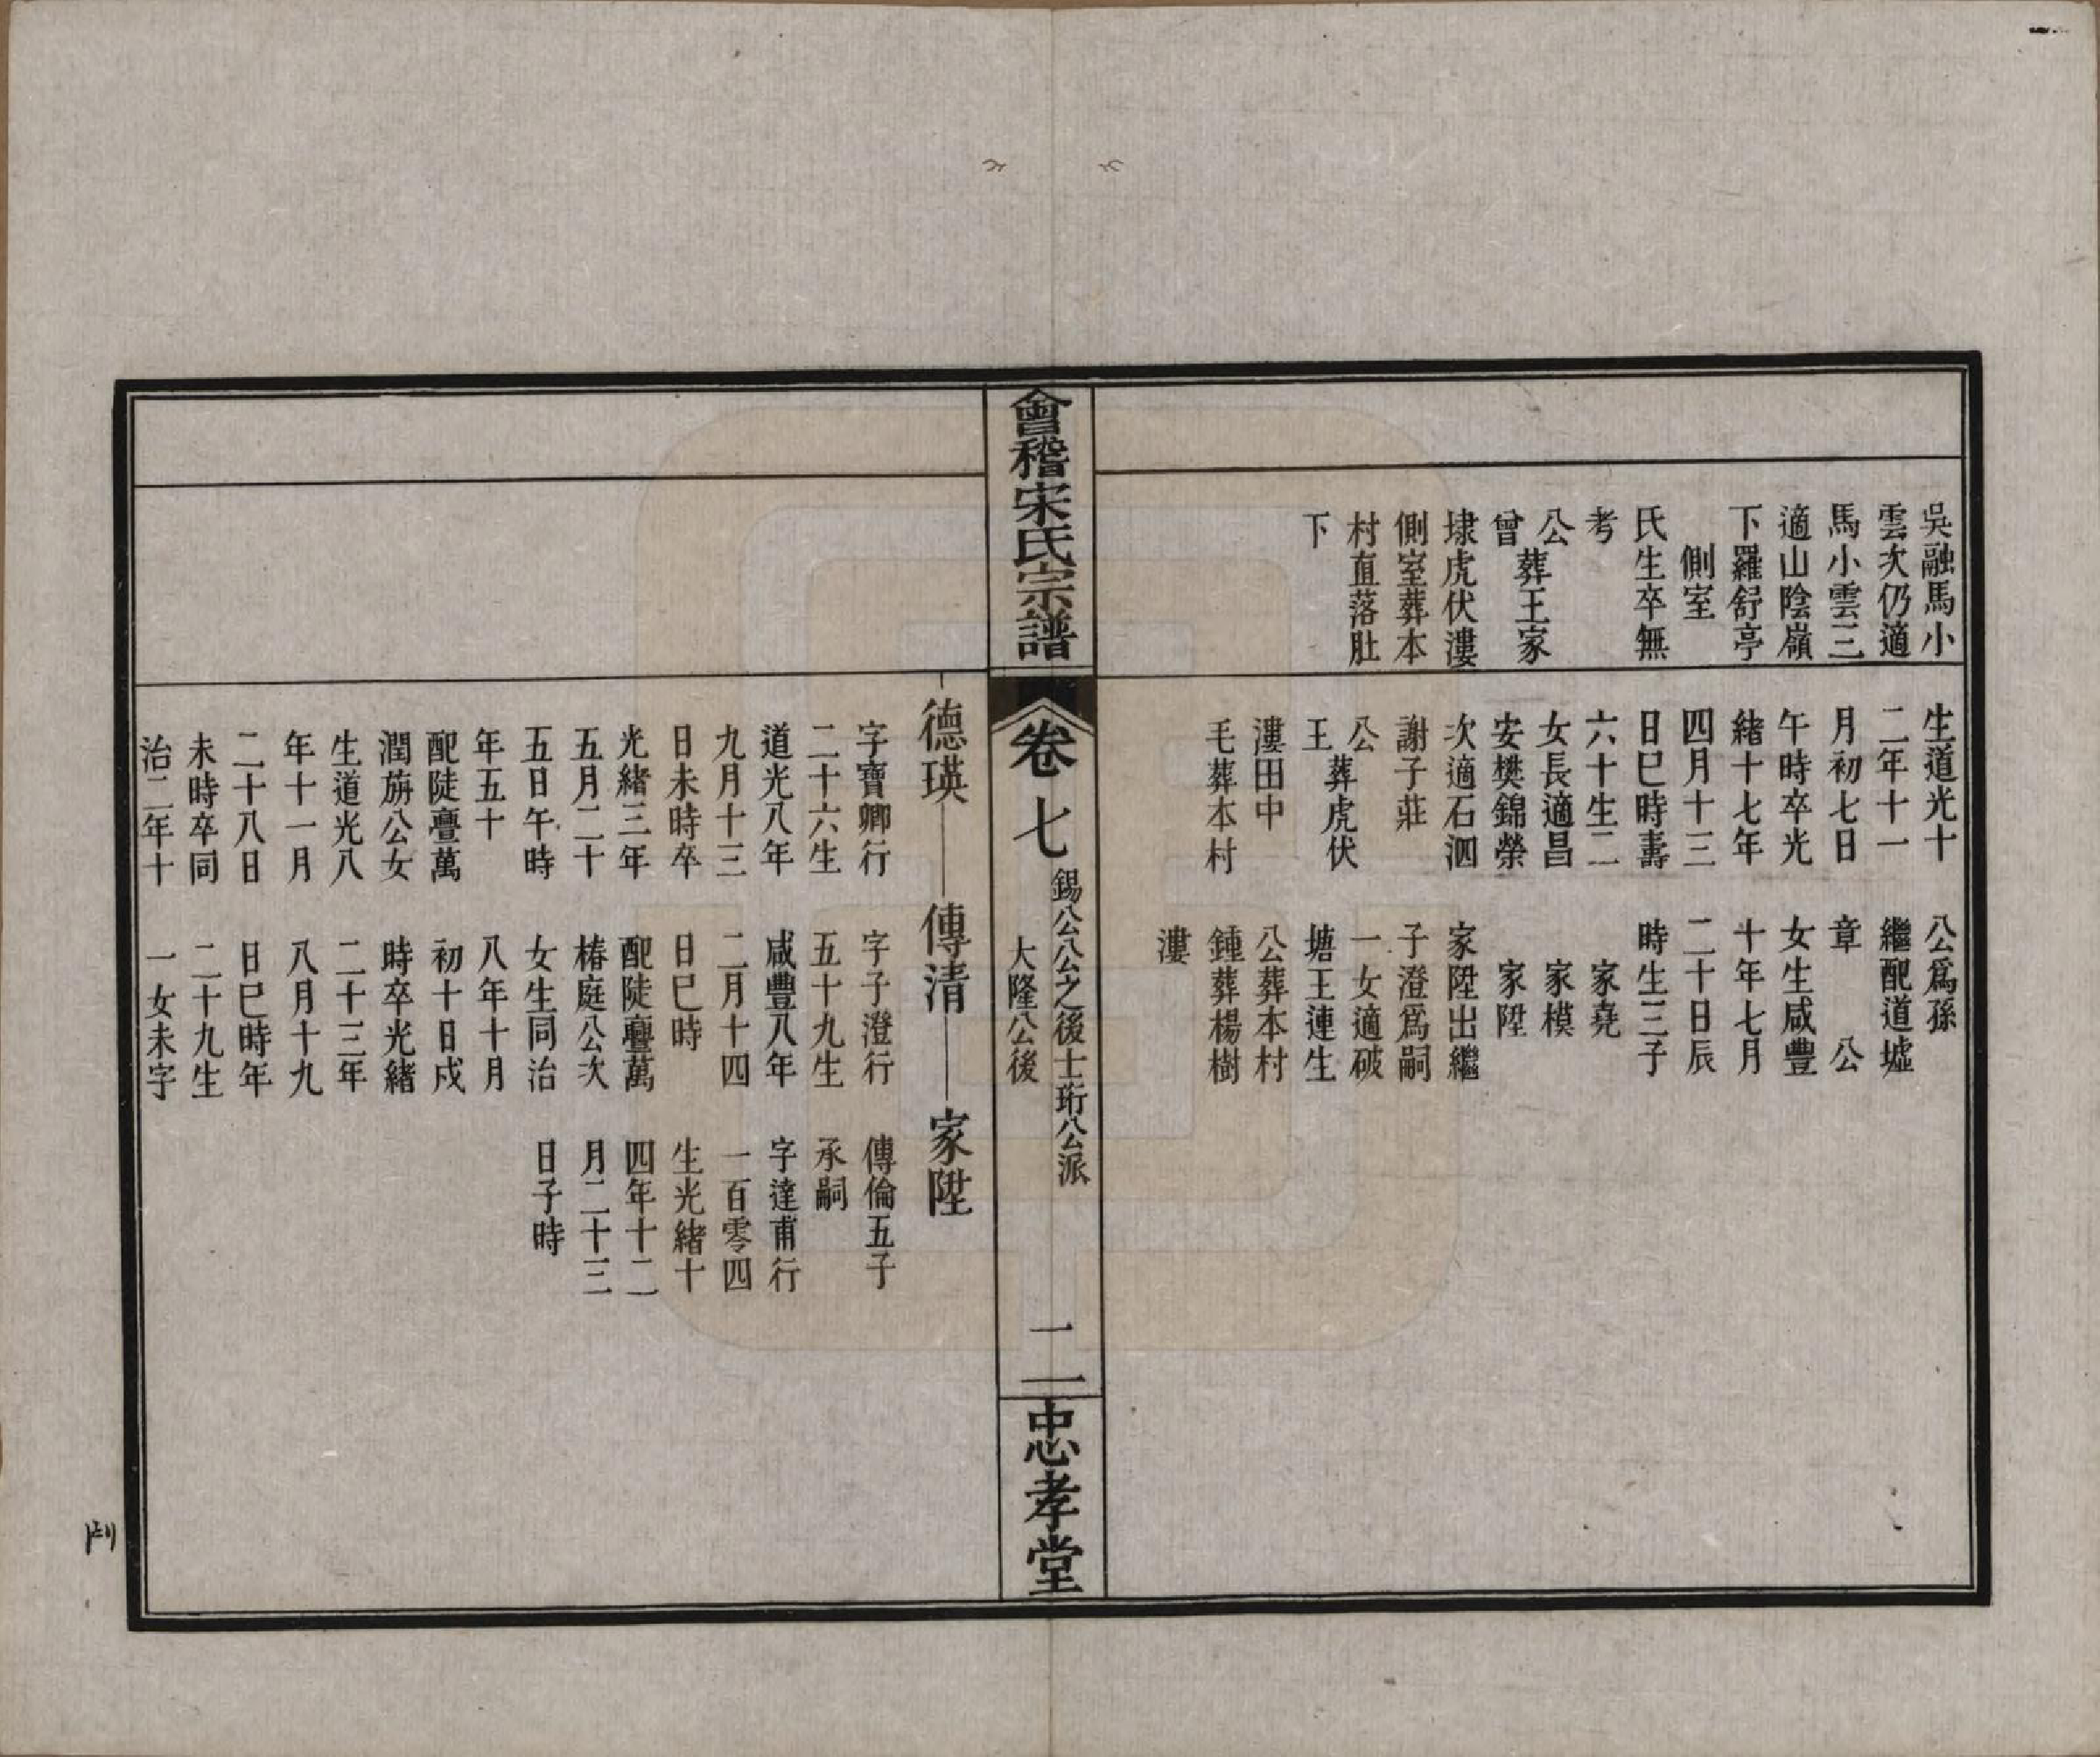 吳融馬小
雲次仍適
馬小雲三
適山陰嶺
下羅舒亭
側室
氏生卒無
考
公
葬王家
曾
埭虎伏漊
側室葬本
村直落肚
下
生道光十
二年十一
月初七日
午時卒光
緒十七年
四月十三
日巳時壽
六十生二
女長適昌
安樊錦榮
次適石泗
謝子莊
公
葬虎伏
王
漊田中
毛葬本村
公爲孫
繼配道墟
章　公
女生咸豐
十年七月
二十日辰
時生三子
家堯
家模
家陞
家陞出繼
子澄爲嗣
一女適破
塘王連生
公葬本村
鍾葬楊樹
漊
會稽宋氏宗譜
卷七
錫公公之後士珩公派
大隆公後
二
忠孝堂
德瑛
傳清
家陞
字寶卿行
二十六生
道光八年
九月十三
日未時卒
光緒三年
五月二十
五日午時
年五十
配陡亹萬
潤旃公女
生道光八
年十一月
二十八日
未時卒同
治二年十
字子澄行
五十九生
咸豐八年
二月十四
日巳時
配陡亹萬
椿庭公次
女生同治
八年十月
初十日戍
時卒光緒
二十三年
八月十九
日巳時年
二十九生
一女未字
傳倫五子
承嗣
字達甫行
一百零四
生光緒十
四年十二
月二十三
日子時